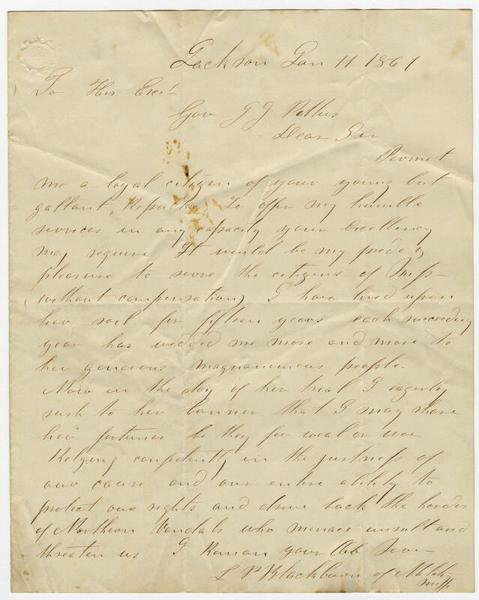 Jackson Jan 11 1861
To His Excl
Gov J J Pettus
Dear Sir
Permit
me a loyal citizen of your young but
gallant Republic To offer my humble
services in any capacity your Excellency
may require It would be my pride &
pleasure to serve the citizens of Miss
(without compensation) I have lived upon
her soil for fifteen years each succeeding
year has wedded me more and more to
her generous magnanimous people.
Now in the day of her trial I eagerly
rush to her banner that I may share
her fortunes be they for weal or woe
Relying competently in the justness of
our cause and our entire ability to
protect our rights and drive back the hordes
of Northern Vandals who menace insult and
threaten us I Remain your Obt Serv
L P Blackburn of Natchez
Miss